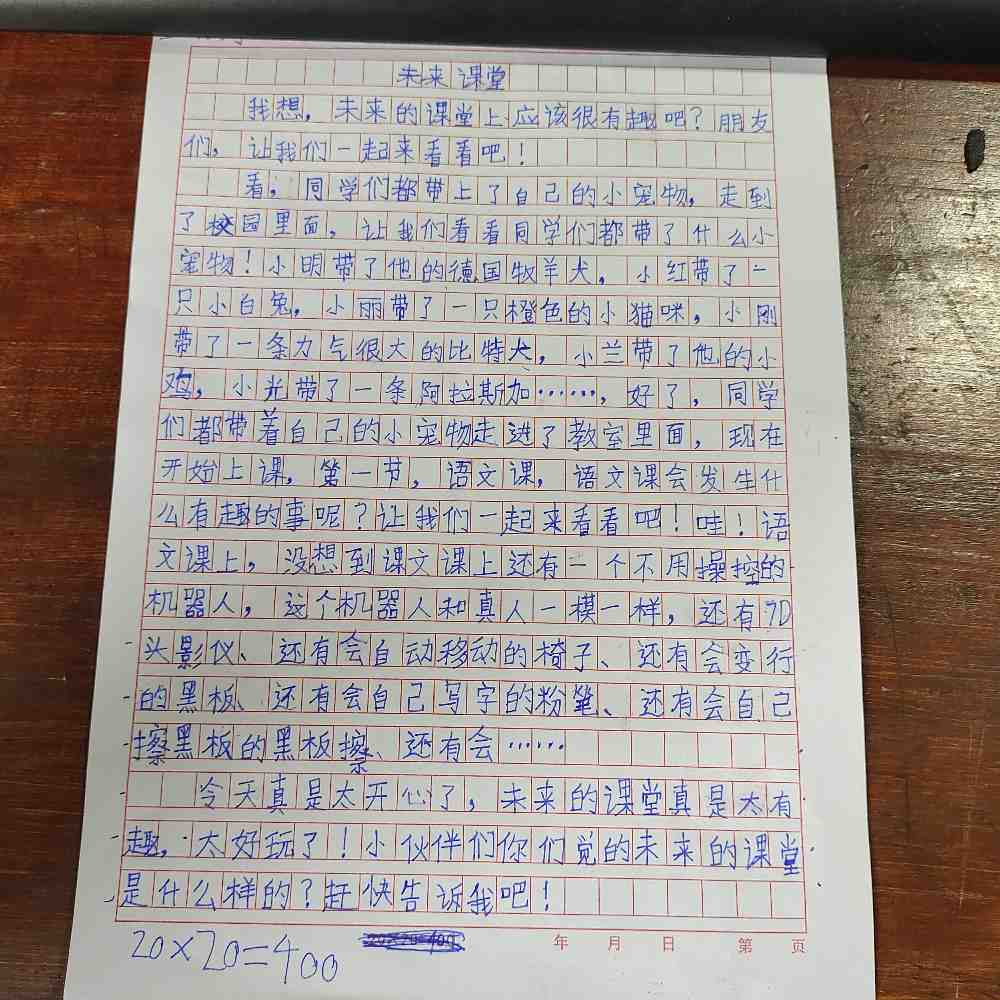 未来课堂
我想，未来的课堂上应该很有趣吧？朋友
们，让我们一起来看看吧！
看，同学们都带上了自己的小宠物，走到
了校园里面，让我们看看同学们都带了什么小
宠物！小明带了他的德国牧羊犬，小红带了一
只小白兔，小丽带了一只橙色的小猫咪，小刚
带了一条力气很大的比特犬，小兰带了他的小
鸡，小光带了一条阿拉斯加……，好了，同学
们都带着自己的小宠物走进了教室里面，现在
开始上课，第一节，语文课，语文课会发生什
么有趣的事呢？让我们一起来看看吧！哇！语
文课上，没想到课文课上还有一个不用操控的
机器人，这个机器人和真人一模一样，还有7D
头影仪、还有会自动移动的椅子、还有会变行
的黑板、还有会自己写字的粉笔、还有会自己
擦黑板的黑板擦、还有会……
今天真是太开心了，未来的课堂真是太有
趣，太好玩了！小伙伴们你们觉的未来的课堂
是什么样的？赶快告诉我吧！
20×20=400
年 月 日 第 页